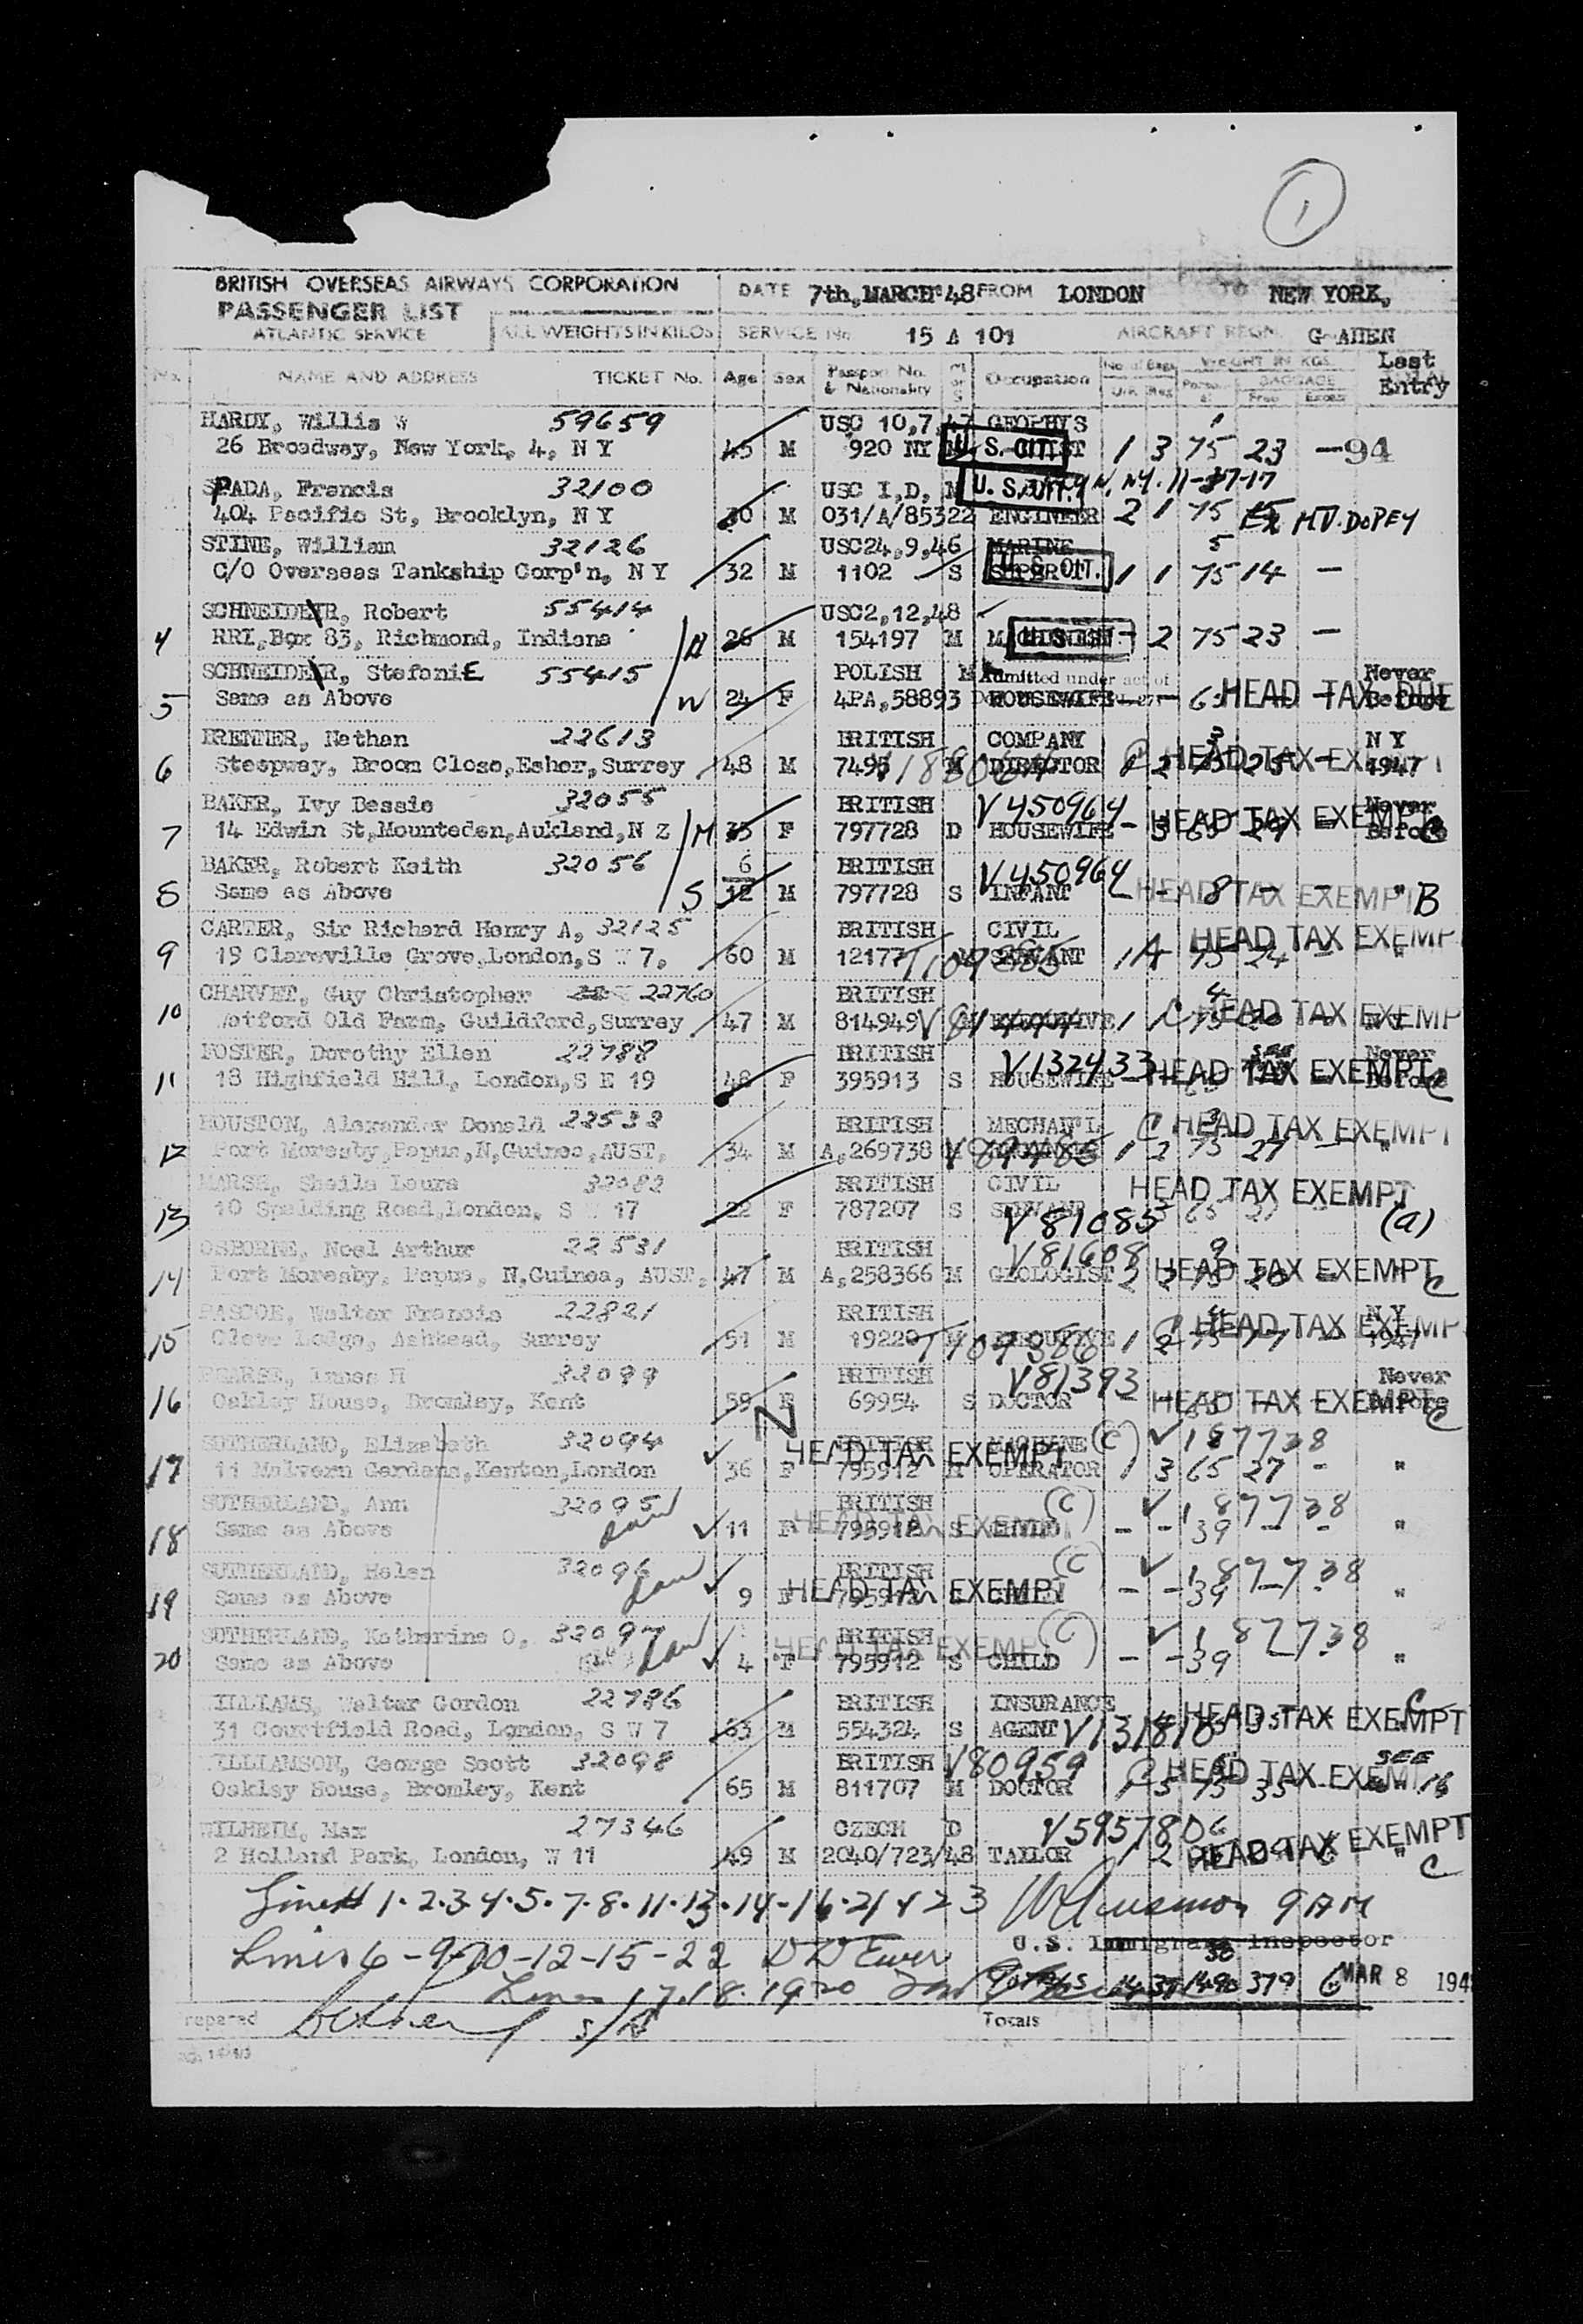 1
BRITISH OVERSEAS AIRWAYS CORPORATION DATE 7th, MARCH 48 FROM LONDON TO NEW YORK,
PASSENGER LIST
ATLANTIC SERVICE ALL WEIGHTS IN KILOS SERVICE No. 15 A 101 AIRCRAFT REGN. G-AHEN
No. NAME AND ADDRESS TICKET No. Age Sex Passport No. & Nationality M or S Occupation No of Bags WEIGHT IN KGS. BAGGAGE Free Excess Last Entry
HARDY, Willis W 59659 USC 10,7,47 GEOPHYS
26 Broadway, New York, 4, N Y 45 M 920 NY U.S. CIT. 1 3 75 23 — 94
SPADA, Francis 32100 USC I,D, U.S. CIT. N.Y. 11-27-17
404 Pacific St, Brooklyn, N Y 30 M 031/A/85322 ENGINEER 2 1 75 MV. DOPEY
STINE, William 32126 USC24,9,46 MARINE 5
C/O Overseas Tankship Corp'n, N Y 32 M 1102 S SUPER U.S. CIT. 1 1 75 14 —
SCHNEIDER, Robert 55414 USC2,12,48
4 RRI,Box 83, Richmond, Indiana H 26 M 154197 M MACHINIST U.S. CIT. - 2 75 23 —
SCHNEIDER, StefaniE 55415 POLISH M Admitted under act of Never
5 Same as Above W 24 F 4PA,58893 HOUSEWIFE HEAD TAX DUE Before
BRENNER, Nathan 22613 BRITISH COMPANY 3 N Y
6 Steepway, Broom Close,Esher,Surrey 48 M 7495 M DIRECTOR C HEAD TAX EXEMPT 1947
BAKER, Ivy Bessie 32055 BRITISH V450964 Never
7 14 Edwin St,Mounteden,Aukland,N Z M 35 F 797728 D HOUSEWIFE HEAD TAX EXEMPT Before
BAKER, Robert Keith 32056 6 BRITISH V450964
8 Same as Above S 12 M 797728 S INFANT - - 8 - - HEAD TAX EXEMPT " B
CARTER, Sir Richard Henry A, 32125 BRITISH CIVIL HEAD TAX EXEMPT
9 19 Clareville Grove,London,S W 7, 60 M 12177 SERVANT 1 4 75 24 —
CHARVET, Guy Christopher 22760 BRITISH 4
10 Watford Old Farm, Guildford,Surrey 47 M 814949 EXECUTIVE 1 1 C HEAD TAX EXEMPT
FOSTER, Dorothy Ellen 22788 BRITISH V132433 Never
11 18 Highfield Hill, London,S E 19 48 F 395913 S HOUSEWIFE HEAD TAX EXEMPT Before C
HOUSTON, Alexander Donald 22532 BRITISH MECHAN'L C HEAD TAX EXEMPT
12 Port Moresby,Papua,N,Guinea,AUST, 34 M A,269738 M V89485 1 2 75 27 — "
MARSH, Sheila Laura 32082 BRITISH CIVIL HEAD TAX EXEMPT
13 10 Spalding Road,London, S W 17 22 F 787207 S SERVANT V81085 65 (a)
OSBORNE, Noel Arthur 22531 BRITISH V81608 9
14 Port Moresby, Papua, N,Guinea, AUST, 47 M A,258366 M GEOLOGIST HEAD TAX EXEMPT C
PASCOE, Walter Francis 22821 BRITISH C HEAD TAX EXEMPT N Y
15 Cleve Lodge, Ashtead, Surrey 51 M 19220 M EXECUTIVE 1 2 75 17 — 1947
PEARSE, Innes H 32099 BRITISH V81393 Never
16 Oakley House, Bromley, Kent 59 F 69954 S DOCTOR HEAD TAX EXEMPT Before C
SUTHERLAND, Elizabeth 32094 BRITISH MACHINE (C) ✓ 187738
17 11 Malvern Gardens,Kenton,London 36 F HEAD TAX EXEMPT 795912 M OPERATOR 1 3 65 27 - "
SUTHERLAND, Ann 32095 BRITISH (C) ✓ 187738
18 Same as Above 11 F HEAD TAX EXEMPT 795912 S CHILD - - 39 - - "
SUTHERLAND, Helen 32096 BRITISH (C) ✓ 187738
19 Same as Above 9 F HEAD TAX EXEMPT 795912 S CHILD - - 39 - - "
SUTHERLAND, Katherine O, 32097 BRITISH (C) ✓ 187738
20 Same as Above 4 F HEAD TAX EXEMPT 795912 S CHILD - - 39 - - "
WILLIAMS, Walter Gordon 22786 BRITISH INSURANCE C
31 Courtfield Road, London, S W 7 63 M 554324 S AGENT V131810 HEAD TAX EXEMPT
WILLIAMSON, George Scott 32098 BRITISH V80959 C HEAD TAX EXEMPT SEE
Oakley House, Bromley, Kent 65 M 811707 M DOCTOR 1 5 75 35 — 16
WILHEIM, Max 27346 CZECH D V5957806
2 Holland Park, London, W 11 49 M 2040/723/48 TAILOR 1 2 HEAD TAX EXEMPT " C
Lines 1·2·3·4·5·7·8·11·13·14-16·21 & 23 9 AM
U.S. Immigrant Inspector
Lines 6-9-10-12-15-22
Lines 17.18.19.20 TOTALS 14 37 1490 379 MAR 8 194
Prepared Totals